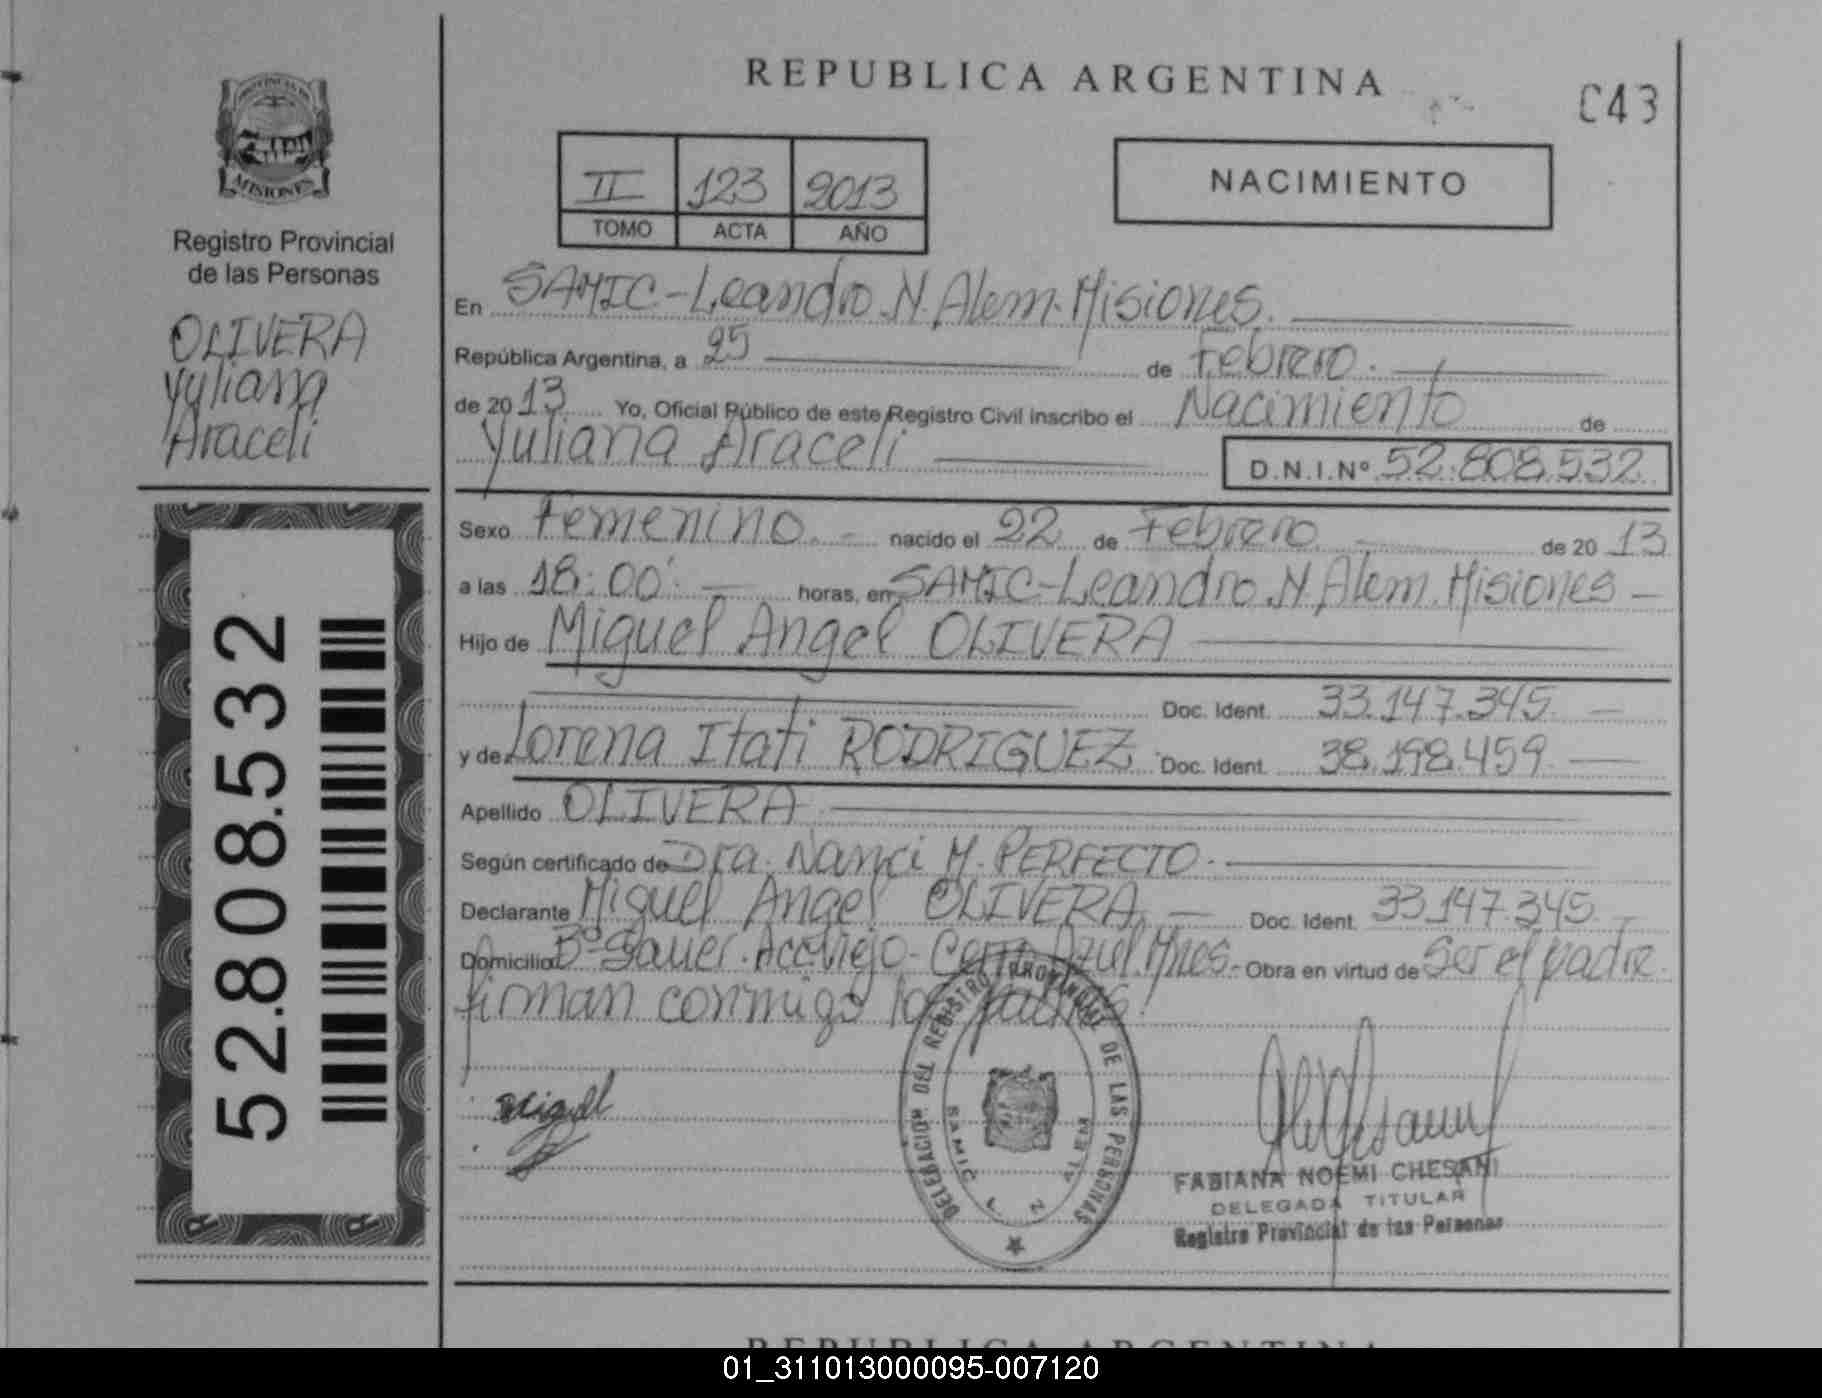 PROVINCIA DE
MISIONES
Registro Provincial
de las Personas
OLIVERA
Yuliana
Araceli
52.808.532
REPUBLICA ARGENTINA
C43
II 123 2013
TOMO ACTA AÑO
NACIMIENTO
En SAMIC-Leandro N. Alem-Misiones.
República Argentina, a 25 de Febrero.
de 2013 Yo, Oficial Público de este Registro Civil inscribo el Nacimiento de
Yuliana Araceli D.N.I.Nº 52.808.532
Sexo Femenino. nacido el 22 de Febrero de 2013
a las 18:00 horas, en SAMIC-Leandro N. Alem. Misiones
Hijo de Miguel Angel OLIVERA
Doc. Ident. 33.147.345
y de Lorena Itati RODRIGUEZ Doc. Ident. 38.198.459
Apellido OLIVERA
Según certificado de Dra. Nanci M. PERFECTO.
Declarante Miguel Angel OLIVERA Doc. Ident. 33.147.345
Domicilio Bº Azul. Mnes. Obra en virtud de Ser el padre.
firman conmigo los padres
DELEGACION DEL REGISTRO PROVINCIAL DE LAS PERSONAS
SAMIC L N ALEM
Miguel
FABIANA NOEMI CHESANI
DELEGADA TITULAR
Registro Provincial de las Personas
REPUBLICA ARGENTINA
01_311013000095-007120